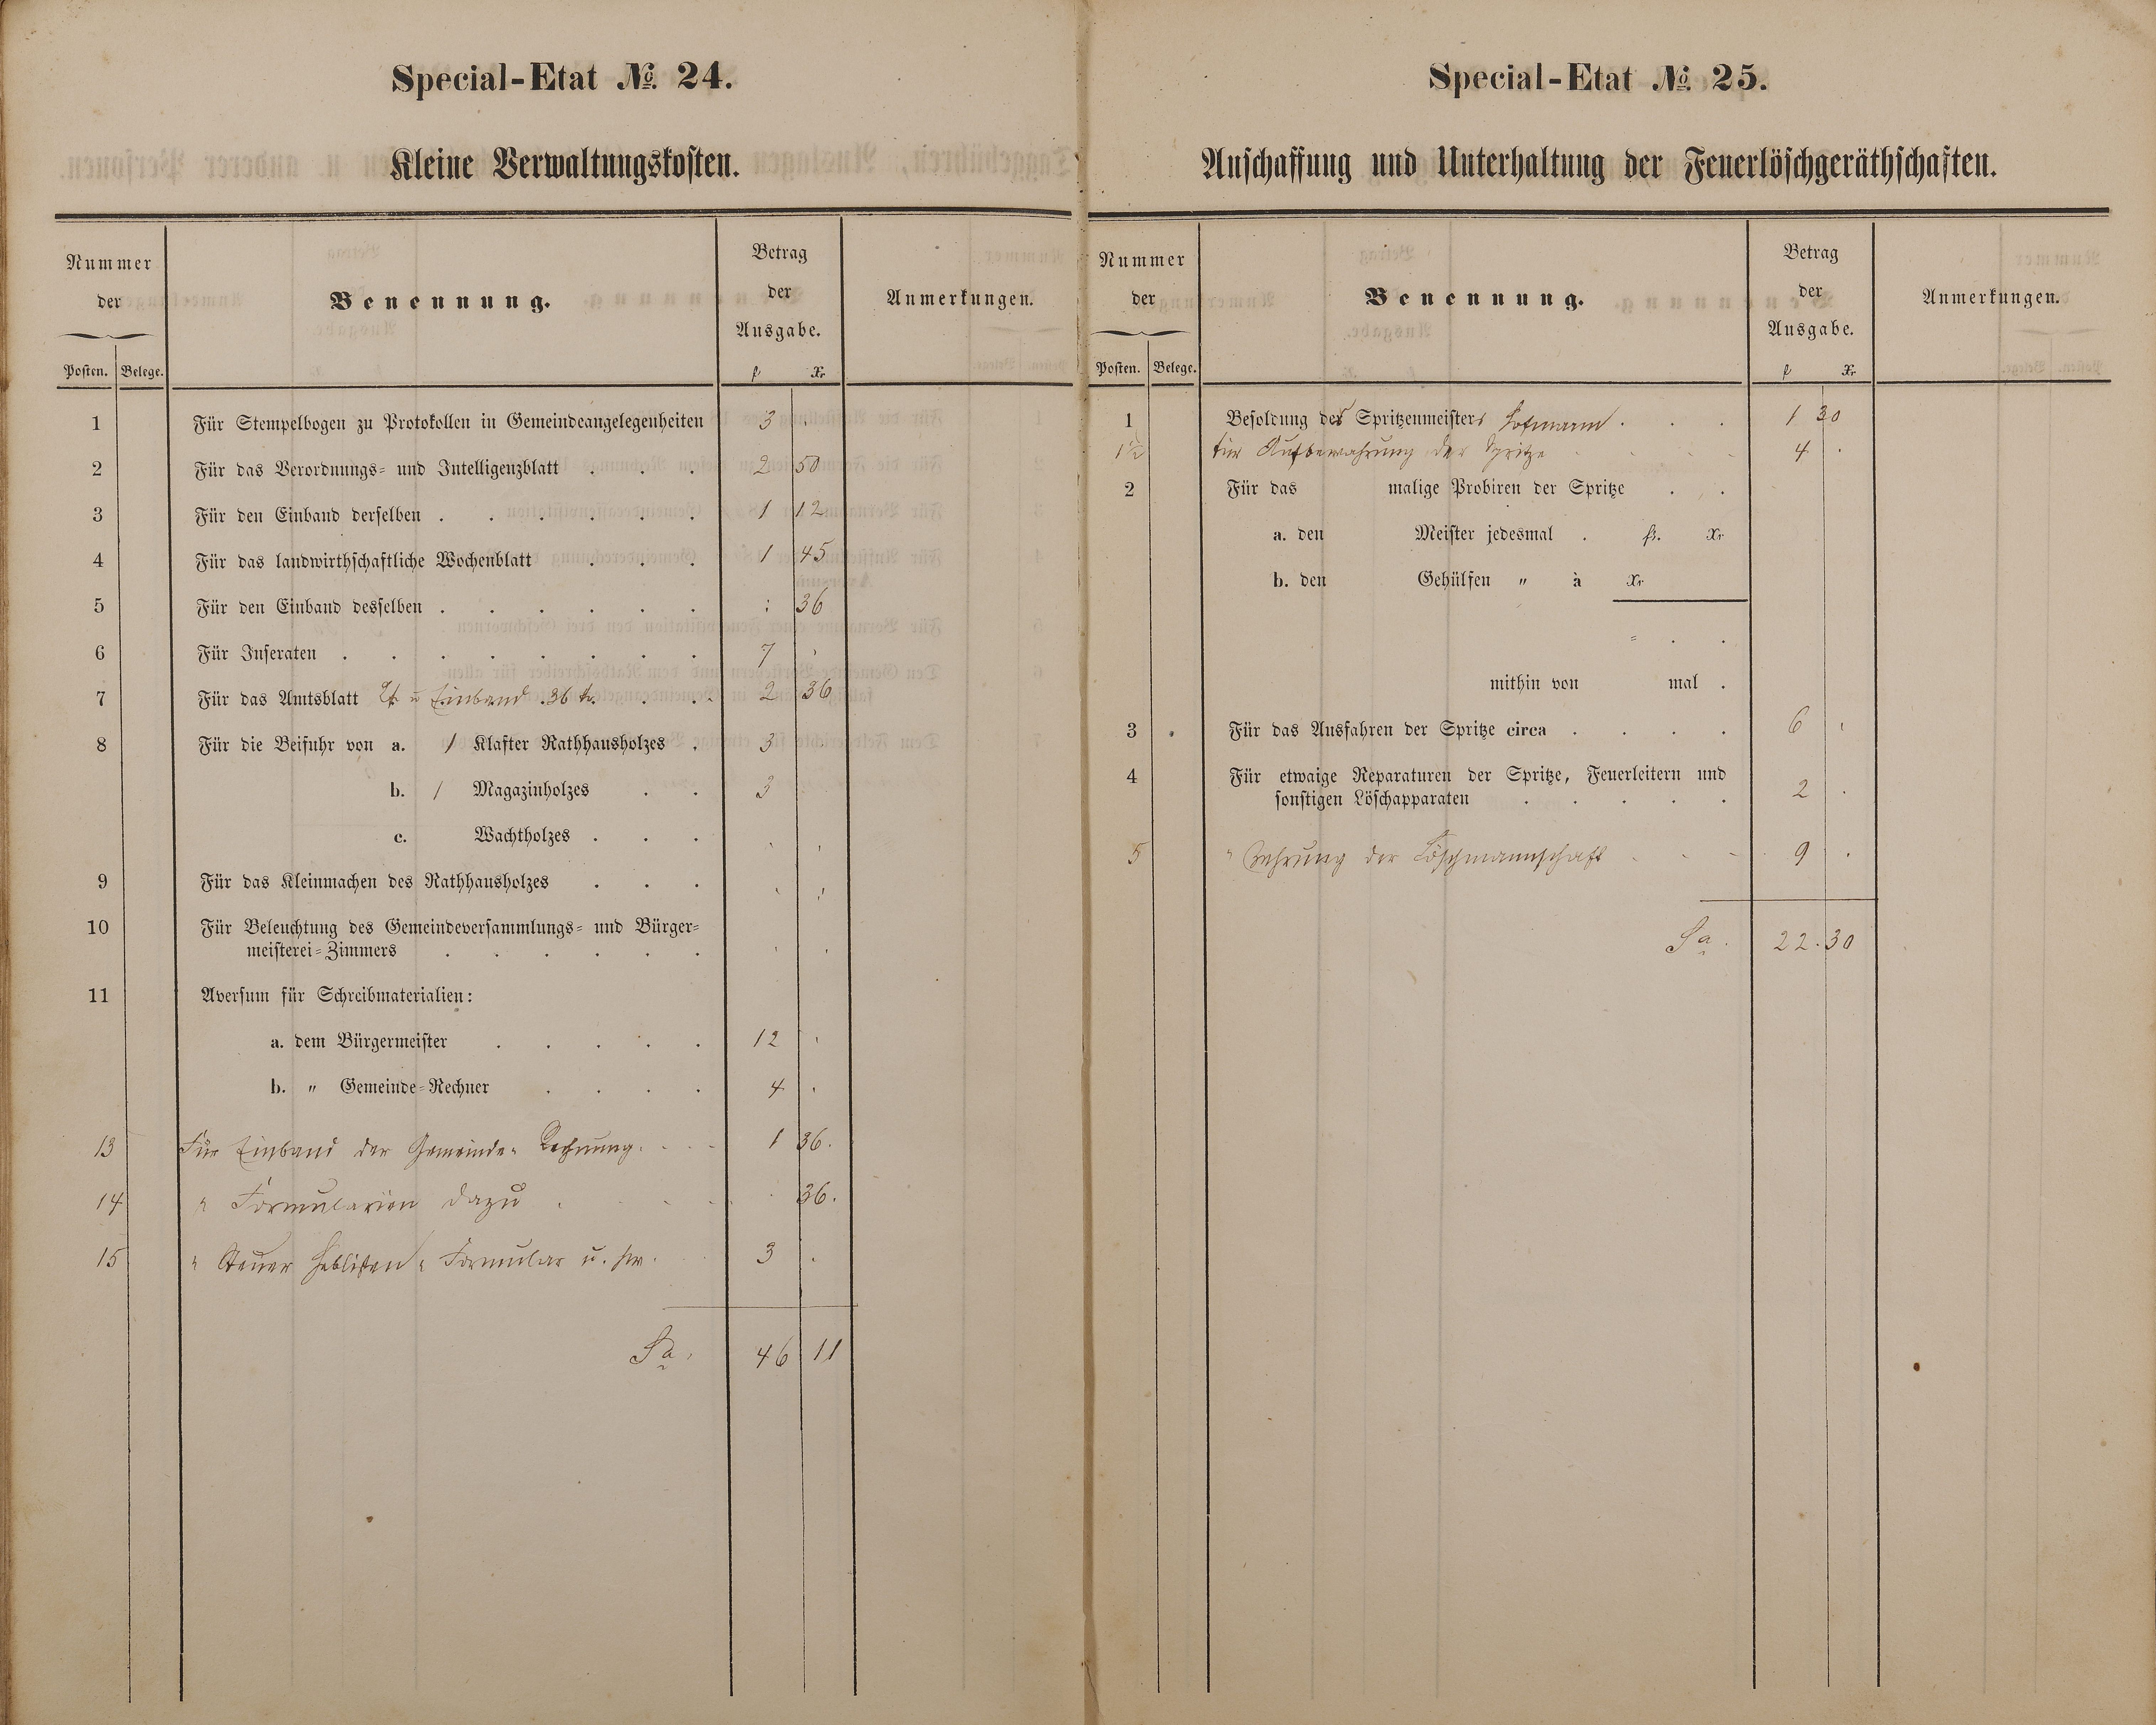 Special-Etat № 24.
Kleine Verwaltungskosten.
Nummer der
Posten. Belege.
Benennung.
Betrag der Ausgabe.
f Xr
Anmerkungen.
1 Für Stempelbogen zu Protokollen in Gemeindeangelegenheiten 3 .
2 Für das Verordnungs- und Intelligenzblatt . . . 2 50
3 Für den Einband derselben . . . . . . 1 12
4 Für das landwirthschaftliche Wochenblatt . . . 1 45
5 Für den Einband desselben . . . . . . : 36
6 Für Inseraten . . . . . . . . 7 .
7 Für das Amtsblatt 2f u Einband .36 Xr. . . . 2 36
8 Für die Beifuhr von a. 1 Klafter Rathhausholzes . 3 .
b. 1 Magazinholzes . . 3
c. Wachtholzes . . . . .
9 Für das Kleinmachen des Rathhausholzes . . . . .
10 Für Beleuchtung des Gemeindeversammlungs- und Bürger-
meisterei-Zimmers . . . . . . . .
11 Aversum für Schreibmaterialien:
a. dem Bürgermeister . . . . . 12 .
b. " Gemeinde-Rechner . . . . 4 .
13 Für Einband der Gemeinde-Rechnung. . . . 1 36.
14 " Formularien dazu . . . . 36.
15 " Steuer Heblisten-Formular u. sw. 3 .
Sa. 46 11
Special-Etat № 25.
Anschaffung und Unterhaltung der Feuerlöschgeräthschaften.
Nummer der
Posten. Belege.
Benennung.
Betrag der Ausgabe.
f Xr
Anmerkungen.
1 Besoldung des Spritzenmeisters Hofmann . . . 1 30
1½ für Aufbewahrung der Spritze . . . . 4 .
2 Für das malige Probiren der Spritze . .
a. den Meister jedesmal . fl. Xr
b. den Gehülfen " à Xr
= . .
mithin von mal .
3 Für das Ausfahren der Spritze circa . . . . 6 .
4 Für etwaige Reparaturen der Spritze, Feuerleitern und
sonstigen Löschapparaten . . . . . 2 .
5 " Zehrung der Löschmannschaft . . . 9 .
Sa. 22.30